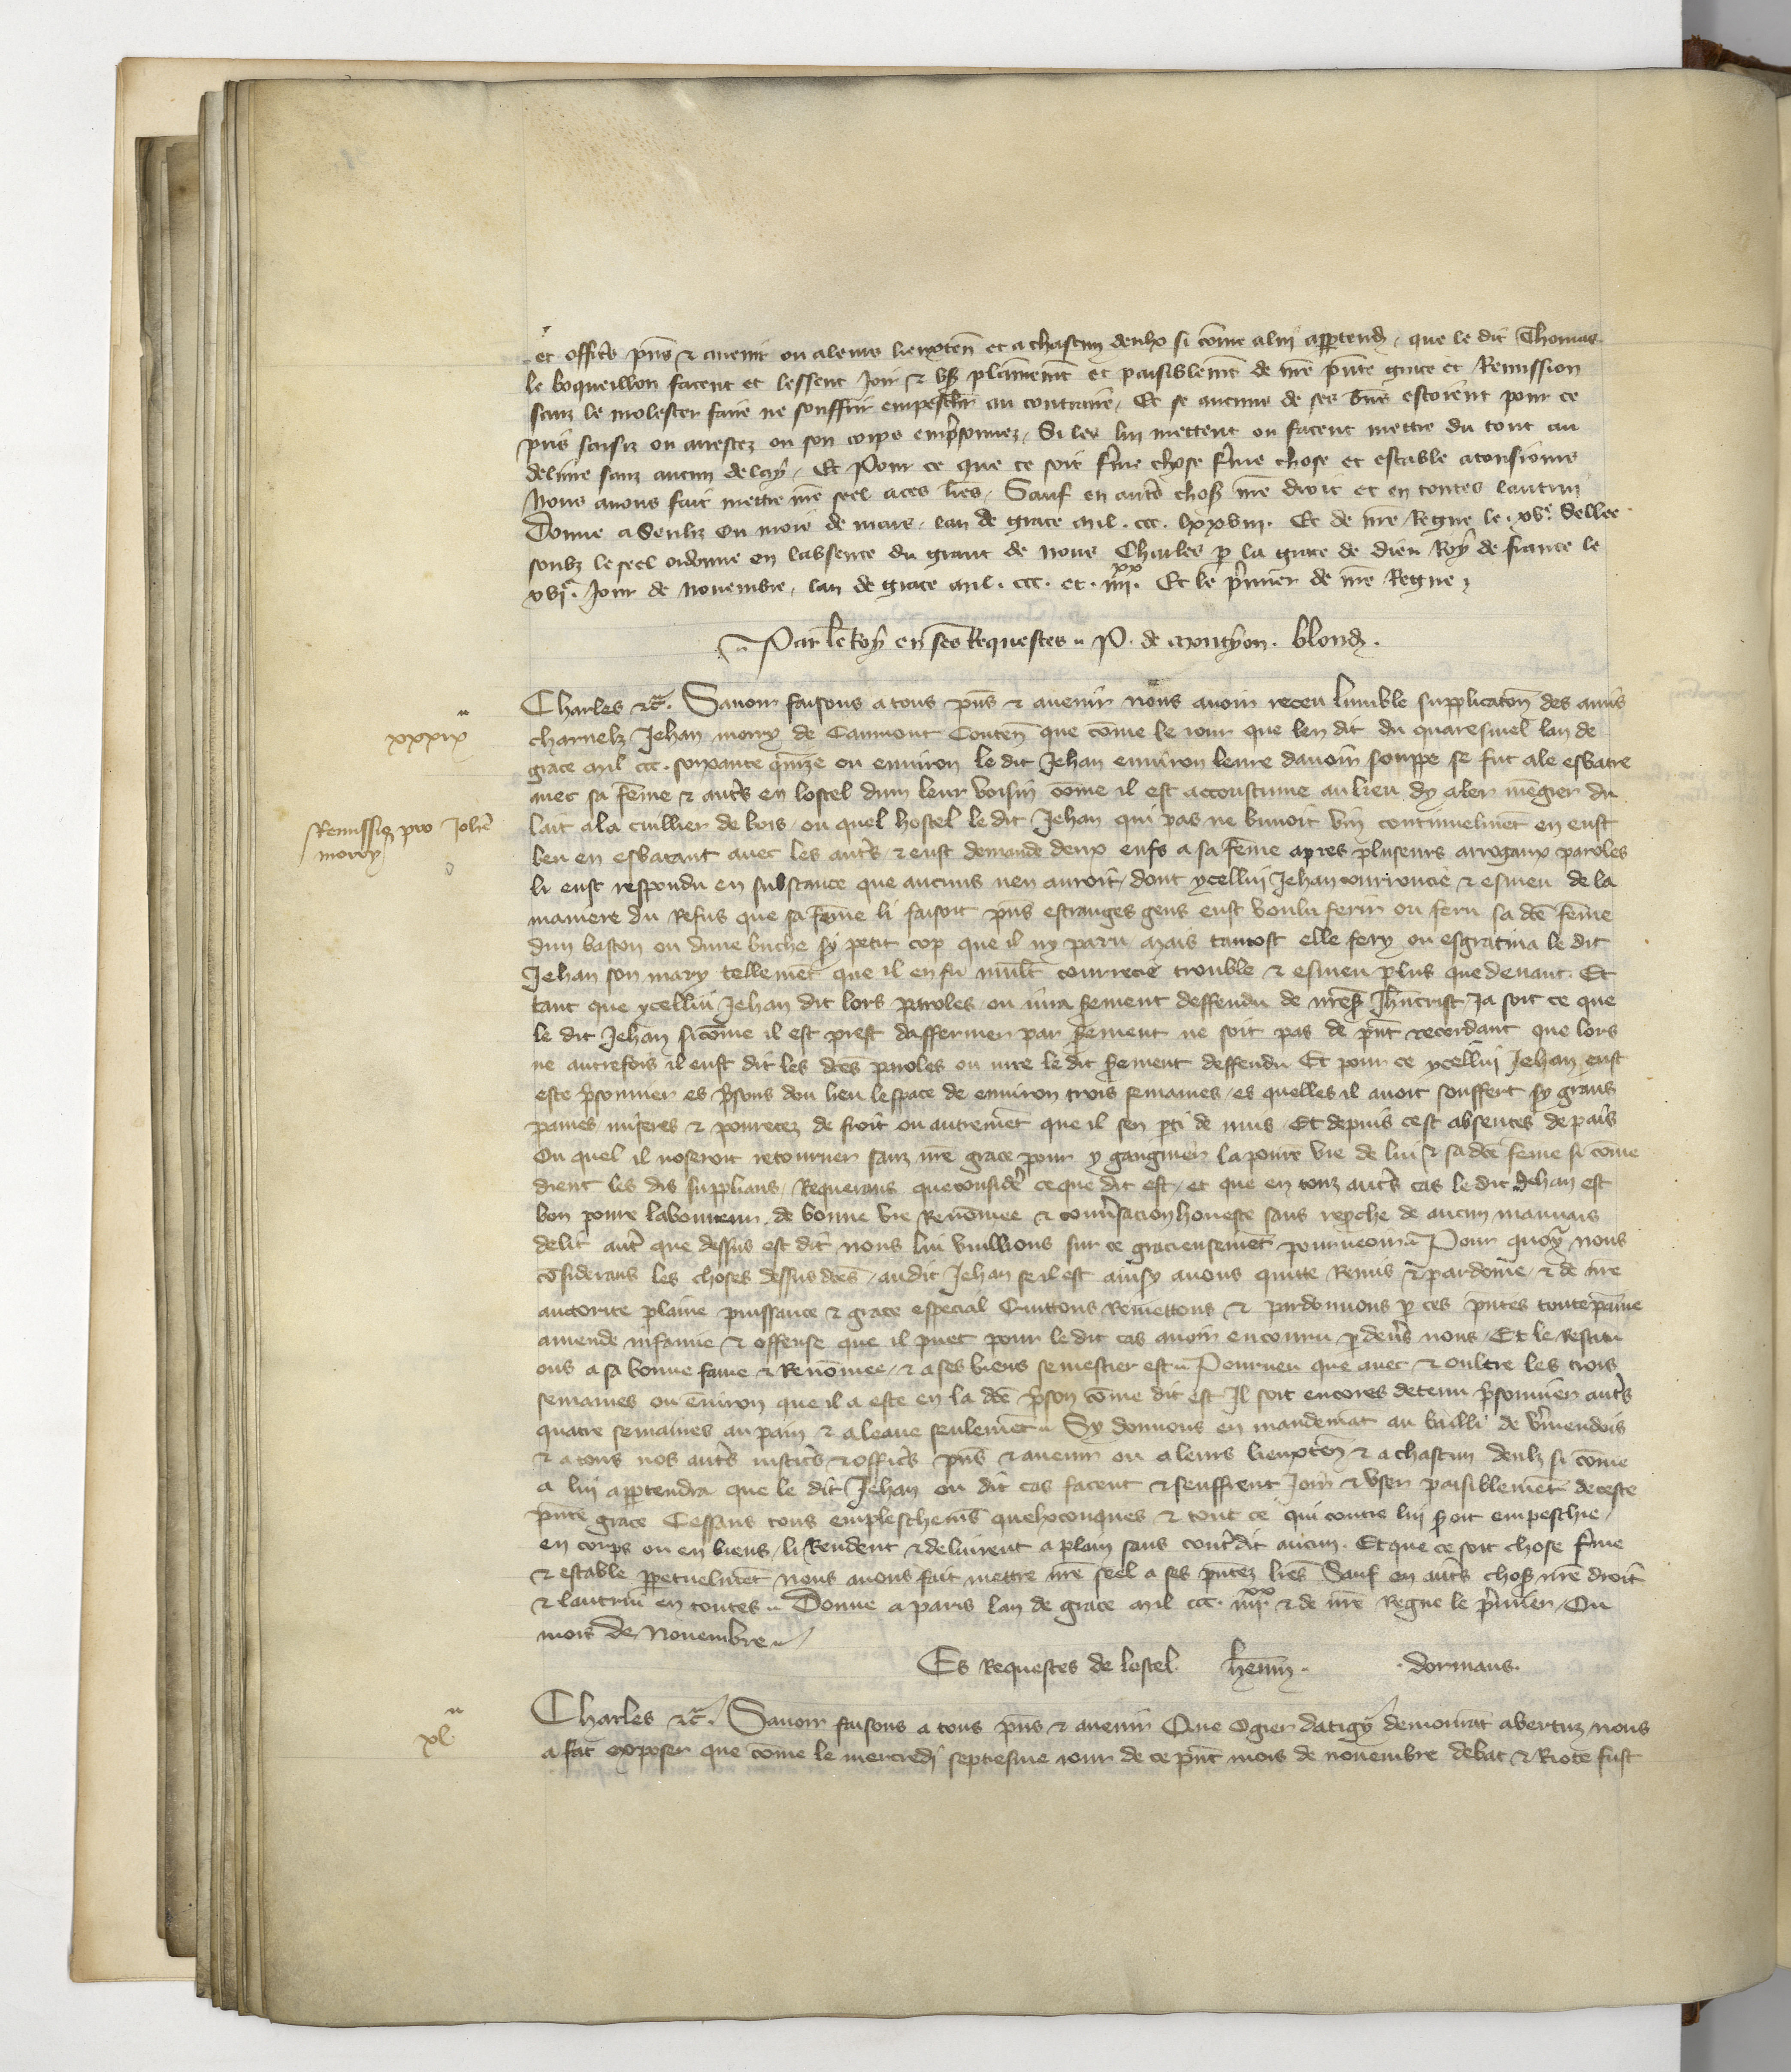 et offic̃s pñs & avenir ou a leurs lieuxteñ et a chascun deulx si cõme a lui appartend̾ que le dit Thomas
le boqueillon facent et lessent joir & us̾ plainemẽt et paisiblemẽt de nr̃e pñte grace et Remission
sanz le molester faire ne souffrir empeschier au contraire / Et se aucuns de ses biẽs estoient pour ce
pris saisiz ou arrestez ou son corps emp̾sonnez / Si les lui mettent ou facent mettre du tout au
delivre sanz aucun delay / Et Pour ce que ce soit f̾me chose f̾me chose et estable a tousiours
Nous avons fait mettre nr̃e seel a ces lr̃es / Sauf en aut̾s chos̾ nr̃e droit et en toutes lautrui
Donne a Senliz ou mois de mars lan de grace mil . ccc . lxxviii . Et de nr̃e Regne le . xve. Sellee
soubz le seel ordonne en labsence du grant de nous Charles p̱ la grace de dieu Roy de france le
xvie. Jour de novembre / lan de grace mil . ccc . et . iiiixx. Et le p̾mier de nr̃e Regne
Par le Roy en ses Requestes P . de montyon . blond̾ .
xxxix
Charles &c̃ . Savoir faisons a tous pñs & avenir nous avoir receu lumble supplicatoñ des amis
charnelz Jehan morry de Caumont Conteñ que cõme le iour que len dit du quaresmel lan de
grace mil ccc . soixante q̾inze ou environ le dit Jehan environ leure davoir souppe se fut ale esbatre
avec sa fẽme & aut̾s en lostel dun leur voisin cõme il est accoustume au lieu dy aler mẽgier du
Remissio pro Johẽ
morry
lait a la cuillier de bois / ou quel hostel le dit Jehan qui pas ne buvoit vin continuelmẽt en eust
beu en esbatant avec les aut̾s / & eust demande deux eufs a sa fẽme apres pluseurs arrogaux paroles
li eust respondu en substance que aucuns nen auroit / dont ycellui Jehan courroucie & esmeu de la
maniere du Refus que sa fẽme li faisoit pñs estranges gens eust voulu ferir ou feru sa dc̃e fẽme
dun baston ou dune buche sy petit cop que il ny paru mais tantost elle fery ou esgratina le dit
Jehan son mary tellemẽt que il en fu mult courrecie trouble & esmeu plus que devant . Et
tant que ycellui Jehan dit lors paroles ou iura s̾ement deffendu de nr̃es̾ Jh̃ucrist Ja soit ce que
le dit Jehan si cõme il est prest daffermer par s̾ement ne soit pas de pñt recordant que lors
ne autrefois il eust dit les dc̃es paroles ou iure le dit s̾ement deffendu Et pour ce ycellui Jehan eust
este p̾sonnier es p̾sons dou lieu lespace de environ trois semaines / es quelles il avoit souffert sy grans
paines miseres & povretez de froit ou autremẽt que il sen p̱ti de nuis . Et depuis cest absentes de païs
Ou quel il noseroit retourner sanz nr̃e grace pour y gaagnier la povre vie de lui & sa dc̃e fẽme si cõme
dient les dis supplians / Requerans que consider̾ ce que dit est / et que en touz aut̾s cas le dit Jehan est
bon povre laboureur de bonne vie Renõmee & conv̾sacion honeste sans rep̱che de aucun mauvais
delit aut̾ que dessus est dit nous lui vuillions sur ce gracieusemẽt pourveoir Pour quoy nous
cõsiderans les choses dessus dc̃es / audit Jehan se il est ainsy avons quitte Remis & pardonne / & de nr̃e
auctorite plaine puissance & grace especial Quittons Remettons & pardonnons p̱ ces pñtes toute paine
amende infamie & offense que il puet pour le dit cas avoir encouru p̱ dev̾s nous / Et le Restitu
ons a sa bonne fame & Renõmee / & a ses biens se mestier est Pourveu que avec & oultre les trois
semaines ou ẽviron que il a este en la dc̃e p̾son cõme dit est Il soit encores detenu p̾sonnier aut̾s
quatre semaines au pain & a leaue seulemẽt Sy donnons en mandemẽt au bailli de v̾mendois
& a tous nos aut̾s iustic̾s & offic̾s pñs & avenir ou a leurs lieuxteñ & a chascun deulz si cõme
a lui app̱tendra que le dit Jehan ou dit cas facent & seuffrent Joir & user paisiblemẽt de ceste
pñte grace Cessans tous empleschemẽs quelxconques & tout ce qui contre lui s̾oit empeschie /
en corps ou en biens / li Rendent & delivrent a plain sans cont̾dit aucun . Et que ce soit chose f̾me
& estable p̱petuelmẽt nous avons fait mettre nr̃e seel a ses pñtez lr̃es Sauf en aut̾s chos̾ nr̃e droit
& lautrui en toutes Donne a paris lan de grace mil ccc . iiiixx. & de nr̃e Regne le p̾mier / Ou
mois de Novembre
Es Requestes de lostel . heniñ . . dormans .
xl
Charles &c̃ . Savoir faisons a tous pñs & avenir Que Ogier datigy demourãt a vertuz nous
a fait exposer que cõme le mercredi septiesme iour de ce pñt mois de novembre debat & Riote fust